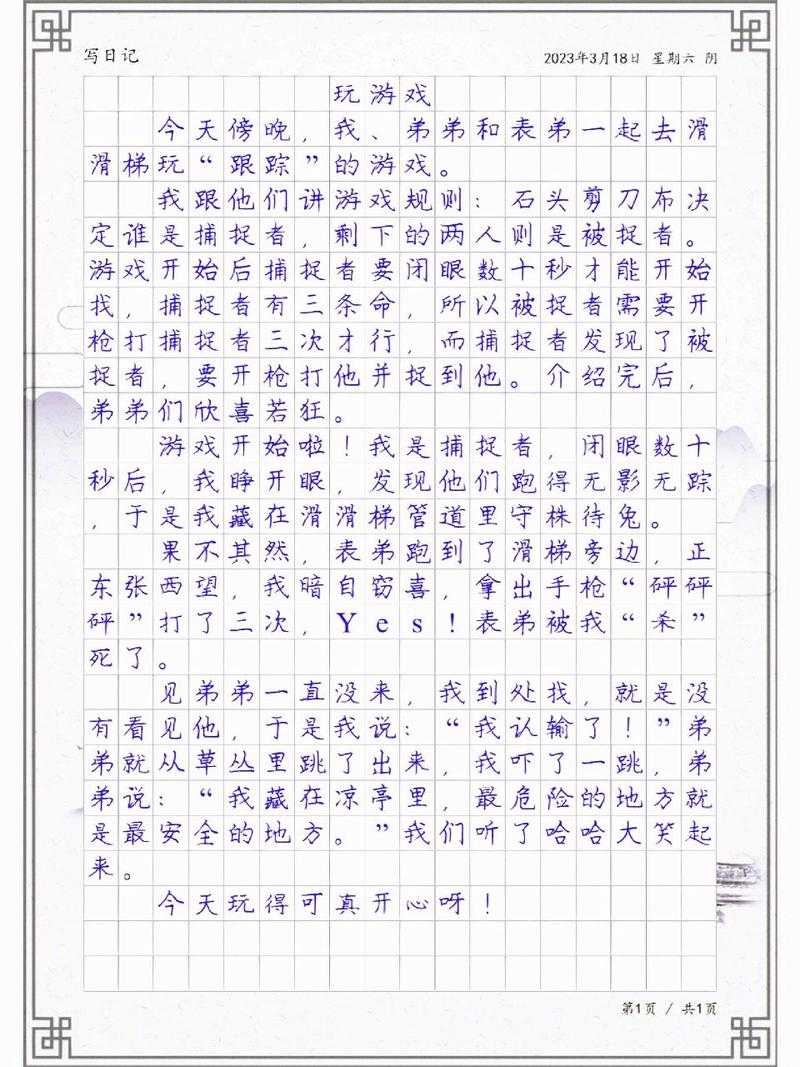 写日记
2023年3月18日 星期六 阴
玩游戏
今天傍晚，我、弟弟和表弟一起去滑
滑梯玩“跟踪”的游戏。
我跟他们讲游戏规则：石头剪刀布决
定谁是捕捉者，剩下的两人则是被捉者。
游戏开始后捕捉者要闭眼数十秒才能开始
找，捕捉者有三条命，所以被捉者需要开
枪打捕捉者三次才行，而捕捉者发现了被
捉者，要开枪打他并捉到他。介绍完后，
弟弟们欣喜若狂。
游戏开始啦！我是捕捉者，闭眼数十
秒后，我睁开眼，发现他们跑得无影无踪
，于是我藏在滑滑梯管道里守株待兔。
果不其然，表弟跑到了滑梯旁边，正
东张西望，我暗自窃喜，拿出手枪“砰砰
砰”打了三次，Yes！表弟被我“杀”
死了。
见弟弟一直没来，我到处找，就是没
有看见他，于是我说：“我认输了！”弟
弟就从草丛里跳了出来，我吓了一跳，弟
弟说：“我藏在凉亭里，最危险的地方就
是最安全的地方。”我们听了哈哈大笑起
来。
今天玩得可真开心呀！
第1页 / 共1页